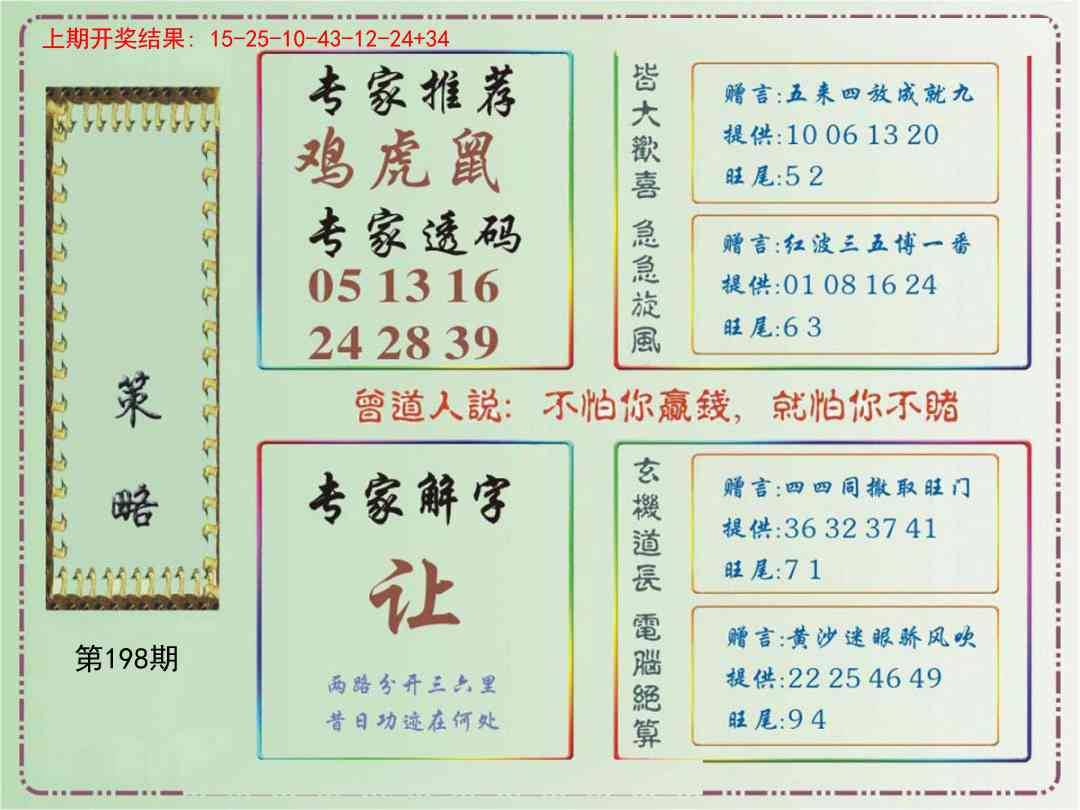 上期开奖结果: 15-25-10-43-12-24+34
策略
第198期
专家推荐
鸡虎鼠
专家透码
05 13 16
24 28 39
皆大歡喜
赠言:五来四放成就九
提供:10 06 13 20
旺尾:5 2
急急旋風
赠言:红波三五博一番
提供:01 08 16 24
旺尾:6 3
曾道人説: 不怕你贏錢, 就怕你不賭
专家解字
让
两路分开三六里
昔日功迹在何处
玄機道長
赠言:四四同撒取旺门
提供:36 32 37 41
旺尾:7 1
電腦絕算
赠言:黄沙迷眼骄风吹
提供:22 25 46 49
旺尾:9 4